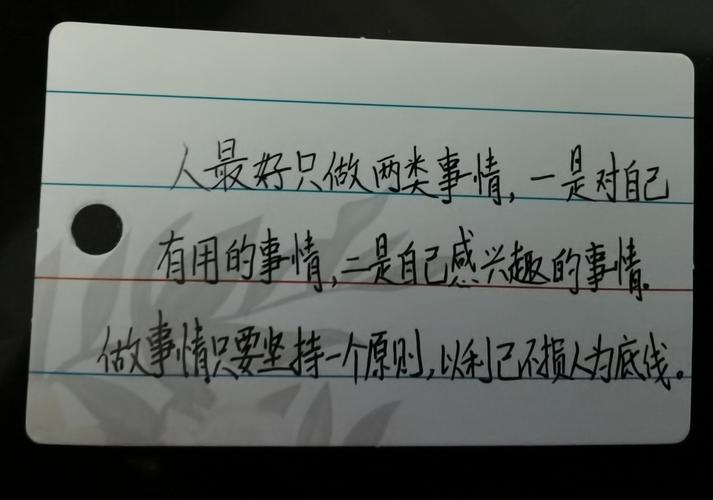 人最好只做两类事情,一是对自己
有用的事情,二是自己感兴趣的事情.
做事情只要坚持一个原则,以利己不损人为底线。